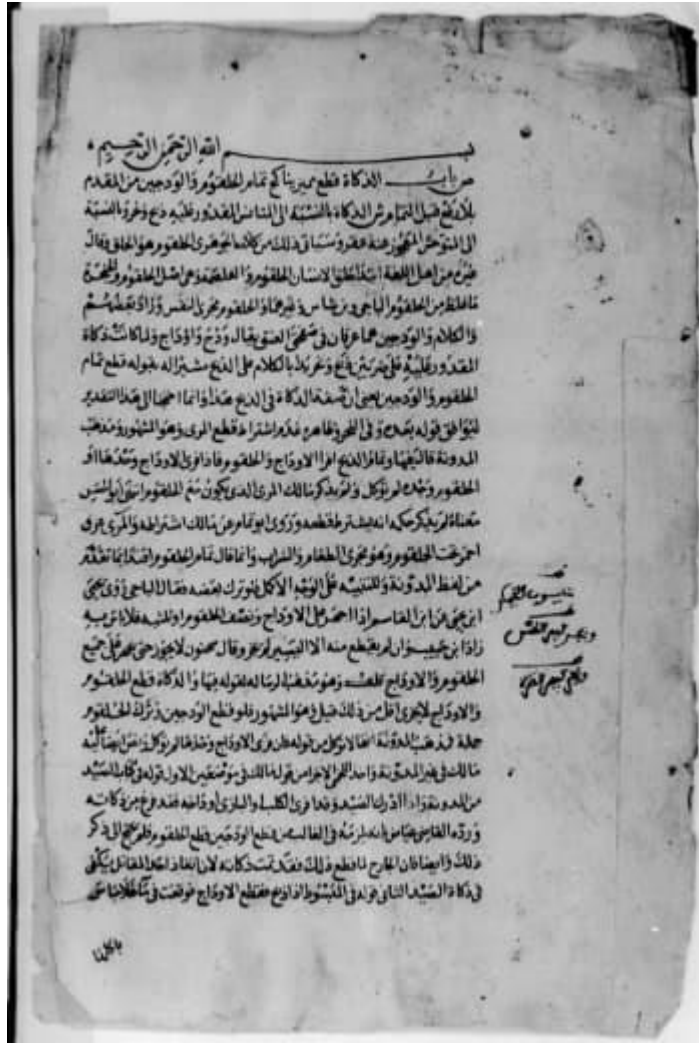 بسم الله الرحمن الرحيم
ص باب الذكاة قطع مميز يناكح تمام الحلقوم والودجين من المقدم
بلا رفع قبل التمام ش الذكاة بالنسبة الى المقدور عليه ذبح ونحر وبالنسبة
الى المتوحش المعجوز عنه عقر وسياتى ذلك من كلامه الجوهرى الحلقوم هو الحلق وقال
غيره من اهل اللغة الحلقوم و الغلصمة هى اصل الحلقوم
ما غلظ من الحلقوم الباجى وبن شاس وغيرهما والحلقوم مجرى النفس وزاد بعضهم
والكلام والودجين هما عرقان فى صفحتى العنق يقال ودج واوداج ولما كانت ذكاة
المقدور عليه على ضربين ذبح ونحر بدا بالكلام على الذبح مشيرا له بقوله قطع تمام
الحلقوم والودجين يعنى ان صفة الذكاة فى الذبح هذا وانما احتجنا الى هذا التقدير
ليوافق قوله بعد وفى النحر وظاهره عدم اشتراط قطع المرى وهو المشهور ومذهب
المدونة قال فيها وتمام الذبح افرا الاوداج والحلقوم فاذا فرى الاوداج وحدها او
الحلقوم وحده لم تؤكل ولم يذكر مالك المرى الذى يكون مع الحلقوم
معناه لم يذكر عنه انه يشترط قطعه وروى ابو تمام عن مالك اشتراطه والمرى عرق
احمر تحت الحلقوم وهو مجرى الطعام والشراب وانما قال تمام الحلقوم
من لفظ المدونة وللتنبيه على الاكل لو ترك بعضه فقال الباجى روى يحيى
ابن يحيى عن ابن القاسم اذا اجهز على الاوداج ونصف الحلقوم او ثلثيه فلا باس به
زاد ابن حبيب وان لم يقطع منه الا اليسير لم يجز وقال سحنون لا يجوز حتى يجهز على جميع
الحلقوم والاوداج وهو مذهب الرسالة لقوله فيها والذكاة قطع الحلقوم
والاوداج لا يجزى اقل من ذلك قيل وهو المشهور فلو قطع الودجين وترك الحلقوم
جملة فمذهب المدونة انها لا تؤكل من قوله فان فرى الاوداج وحدها لم تؤكل
مالك فى غير المدونة واخذ اللخمى الاجزا من قول مالك فى موضعين الاول قوله فى كتاب الصيد
من المدونة واذا ادرك الصيد وقد افرى الكلب او البازى اوداجه فقد فرغ من ذكاته
ورده القاضى عياض بانه يلزمه فى الغالب من قطع الودجين قطع الحلقوم فلم يحتج الى ذكر
ذلك وايضا فان الجارح لما قطع ذلك فقد تمت ذكاته لان انفاذ احد المقاتل يكفى
فى ذكاة الصيد الثانى قوله فى المبسوط اذا ذبح فقطع الاوداج فوقعت فى ماء فلا باس
باكلها